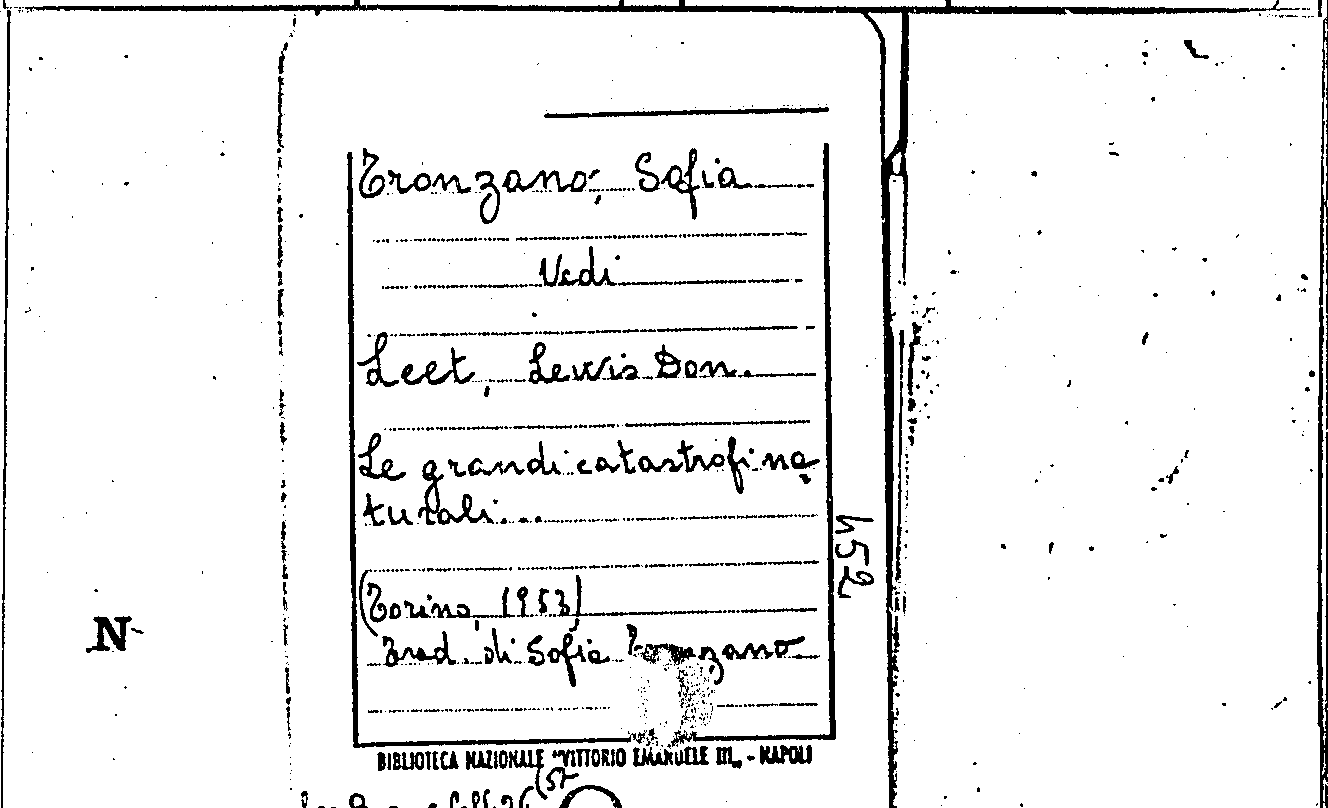 Tronzano, Sofia
Vedi
Leet, Lewis Don.
Le grandi catastrofi na
turali...
(Torino, 1953)
Trad. di Sofia Tronzano
452
N
BIBLIOTECA NAZIONALE "VITTORIO EMANUELE III„ - NAPOLI